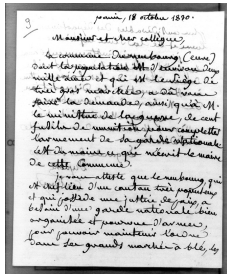 paris, 18 octobre 1830.
Monsieur et cher collègue,
La commune Du neubourg (eure)
dont la population est d'environ deux
mille ames et qui est le siège de
trois gros marchés, a dû vous
faire la demande, ainsi qu'à M.
le ministre de la guerre, de cent
fusils de munition pour completter
l'armement de sa garde nationale
c'est du moins ce que m'écrit le maire
de cette Commune.
j'atteste que le neubourg, qui
est chef lieu d'un canton très populeux
et qui possède une justice de paix, a
besoin d'une garde nationale bien
organisée et pourvue d'armes
pour pouvoir maintenir l'ordre
dans ses grands marchés à blé, les